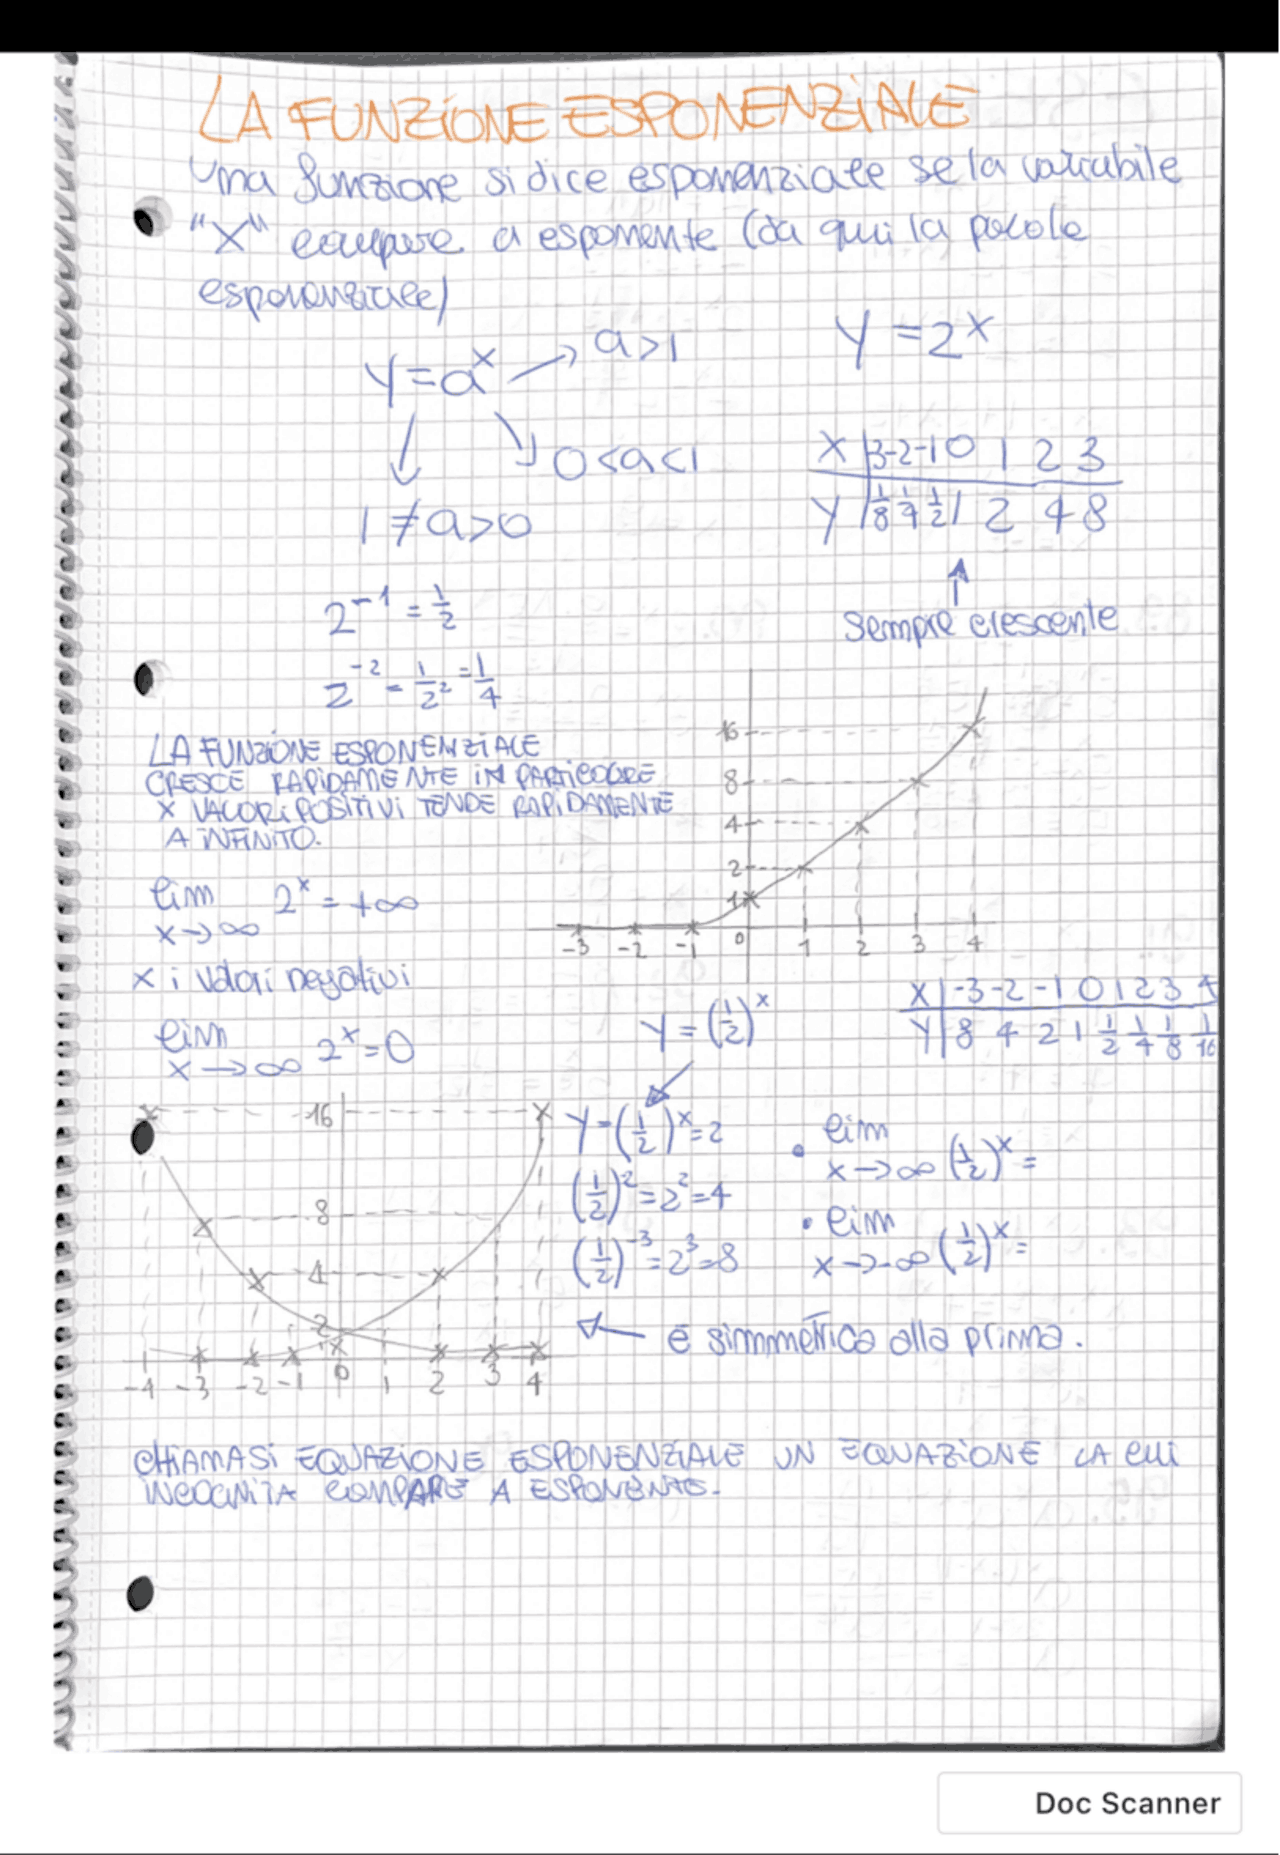 LA FUNZIONE ESPONENZIALE
Una funzione si dice esponenziale se la variabile
"X" compare a esponente (da qui la parola
esponenziale)
y = a^x → a>1
↓ ↘ 0<a<1
1 ≠ a>0
y = 2^x
X | 3 -2 -1 0 1 2 3
y | 1/8 1/4 1/2 1 2 4 8
↑
sempre crescente
2^-1 = 1/2
2^-2 = 1/2^2 = 1/4
LA FUNZIONE ESPONENZIALE
CRESCE RAPIDAMENTE IN PARTICOLARE
X VALORI POSITIVI TENDE RAPIDAMENTE
A INFINITO.
lim 2^x = +∞
x→∞
x i valori negativi
lim 2^x = 0
x→∞
16
8
4
2
1
-3 -2 -1 0 1 2 3 4
y = (1/2)^x
X | -3 -2 -1 0 1 2 3 4
Y | 8 4 2 1 1/2 1/4 1/8 1/16
16
8
4
2
1
-4 -3 -2 -1 0 1 2 3 4
y = (1/2)^x = 2
(1/2)^2 = 2^2 = 4
(1/2)^-3 = 2^3 = 8
• lim
x→∞ (1/2)^x =
• lim
x→-∞ (1/2)^x =
← è simmetrica alla prima.
CHIAMASI EQUAZIONE ESPONENZIALE UN EQUAZIONE LA CUI
INCOGNITA COMPARE A ESPONENTE.
Doc Scanner